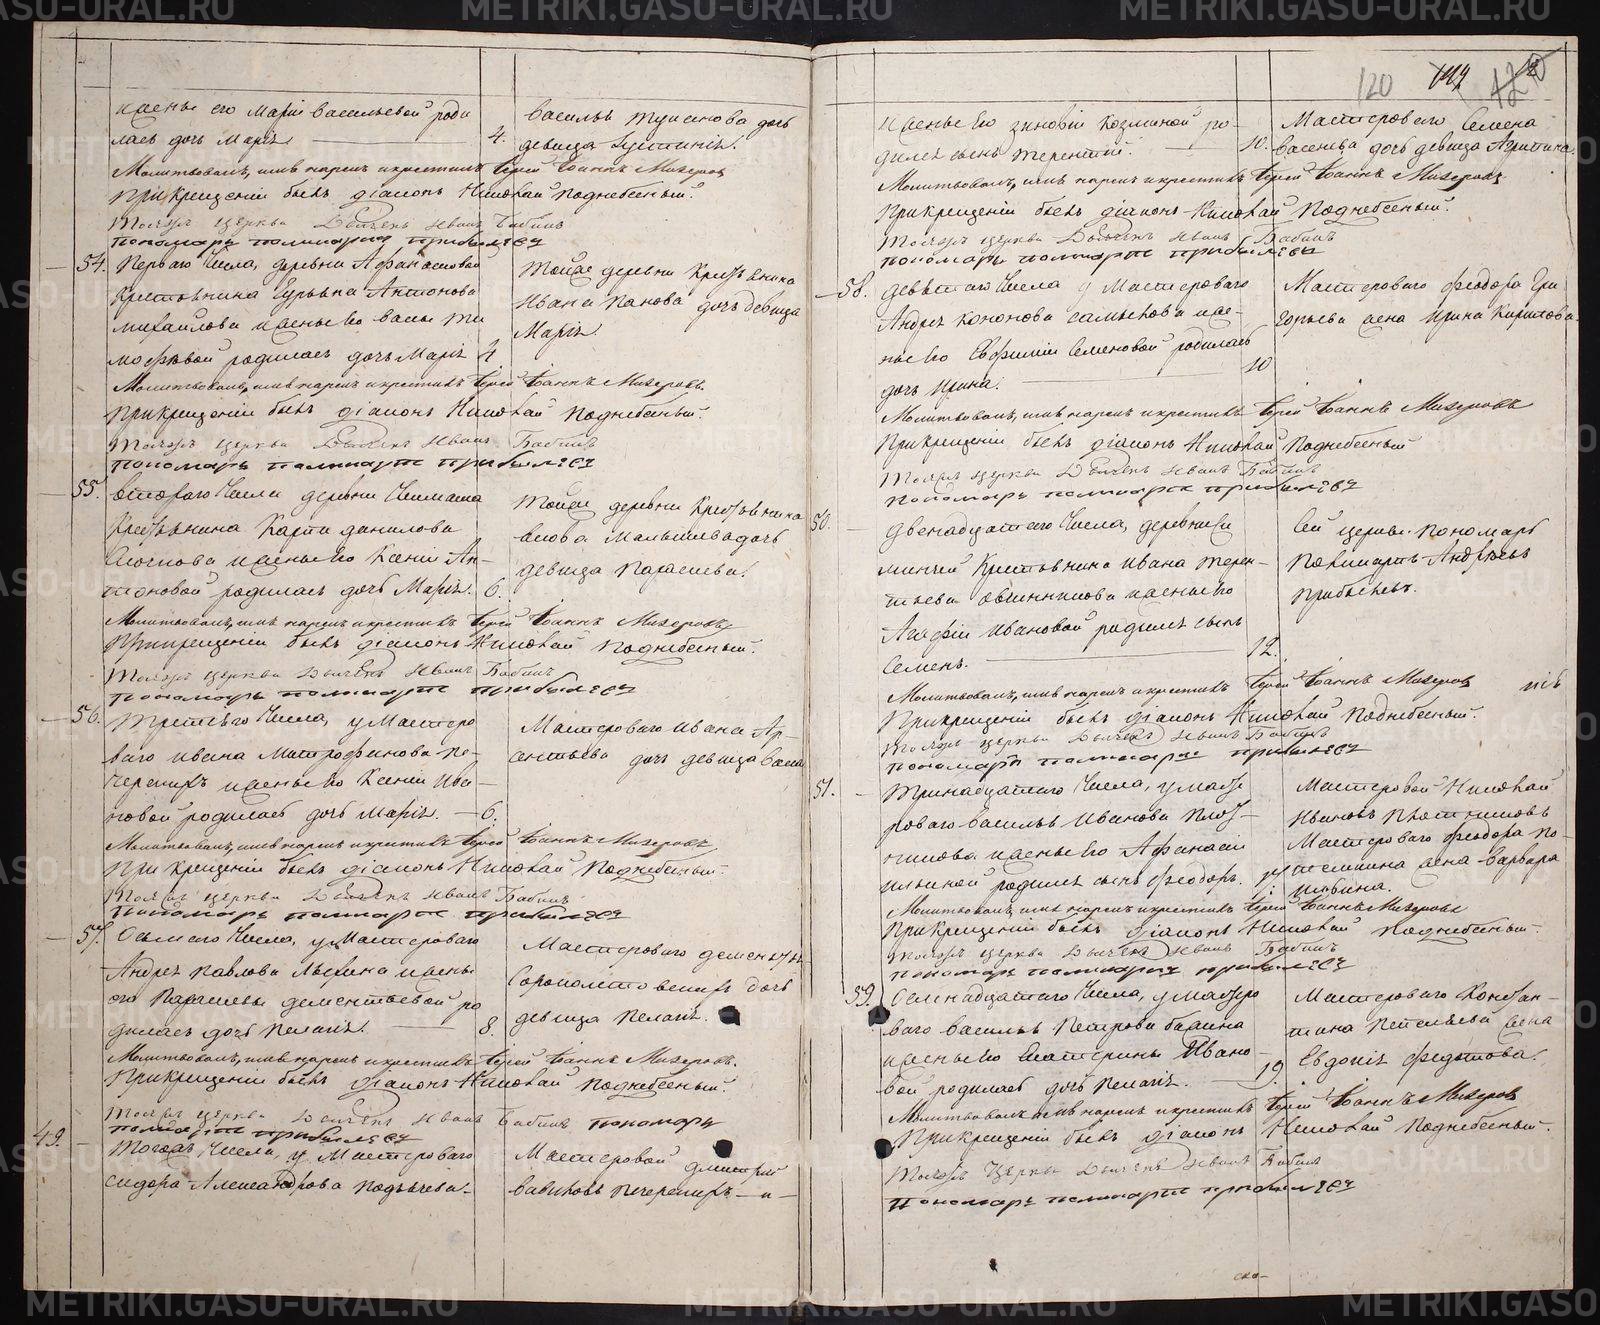 жены его Маріи Васильевой роди
лась дочь Марія 4.
Молитвовалъ, имя нарекъ и крестилъ Іерей Іоаннъ Мизеровъ
При крещеніи былъ діаконъ Николай Поднебесный.
Тоя же церкви Дьячекъ Иванъ Бабинъ
пономарь поликарпъ прибылевъ
Василья дочь
девица Устинія.
54. Перваго Числа, деревни Афанасковой
Крестьянина Гурьяна Антонова
Михайлова и жены его Васы Ти
мофѣевой родилась дочь Марія 4
Тойже деревни Крестьянина
Ивана Панова дочь девица
Марія
Молитвовалъ, имя нарекъ и крестилъ Іерей Іоаннъ Мизеровъ.
При крещеніи былъ діаконъ Николай Поднебесный.
Тоя же церкви Дьячекъ Иванъ Бабинъ
пономарь поликарпъ прибылевъ
55. Втораго Числа деревни
Крестьянина Карпа Данилова
и жены его Ксеніи Ан-
тоновой родилась дочь Марія. 6.
Тойже деревни Крестьянина
Малышева дочь
девица Параскева.
Молитвовалъ, имя нарекъ и крестилъ Іерей Іоаннъ Мизеровъ
При крещеніи былъ діаконъ Николай Поднебесный.
Тоя же церкви Дьячекъ Иванъ Бабинъ
пономарь поликарпъ прибылевъ
56. Третьяго Числа, у Мастеро
ваго Ивана Митрофанова Пе-
черскихъ и жены его Ксеніи Ива-
новой родилась дочь Марія. 6.
Мастероваго Ивана Ар-
сентьева дочь девица
Молитвовалъ, имя нарекъ и крестилъ Іерей Іоаннъ Мизеровъ
При крещеніи былъ діаконъ Николай Поднебесный.
Тоя же церкви Дьячекъ Иванъ Бабинъ
пономарь поликарпъ прибылевъ
57. Осьмого Числа, у Мастероваго
Андрея Павлова и жены
его Параскевы Дементьевой ро
дилась дочь Пелагія. 8.
Мастероваго Дементья
дочь
девица Пелагія.
Молитвовалъ, имя нарекъ и крестилъ Іерей Іоаннъ Мизеровъ.
При крещеніи былъ діаконъ Николай Поднебесный.
Тоя же церкви Дьячекъ Иванъ Бабинъ пономарь
поликарпъ прибылевъ
49. Тогожъ Числа, у Мастероваго
Сидора Александрова
Мастеровой Дмитрій
120
жены его Зиновіи Козминой ро-
дился сынъ Терентій. 10.
Мастероваго Семена
дочь девица
Молитвовалъ, имя нарекъ и крестилъ Іерей Іоаннъ Мизеровъ
При крещеніи былъ діаконъ Николай Поднебесный.
Тоя же церкви Дьячекъ Иванъ Бабинъ
пономарь поликарпъ прибылевъ
58. Девятаго Числа у Мастероваго
Андрея Кононова и же-
ны его Евфиміи Семеновой родилась
дочь Ирина. 10
Мастероваго Феодора Гри
горьева жена Ирина Кирилова.
Молитвовалъ, имя нарекъ и крестилъ Іерей Іоаннъ Мизеровъ
При крещеніи былъ діаконъ Николай Поднебесный
Тоя же церкви Дьячекъ Иванъ Бабинъ
пономарь поликарпъ прибылевъ
50. Двенадцатаго Числа, деревни
Крестьянина Ивана Терен-
тьева Овчинникова и жены его
Агафіи Ивановой родился сынъ
Семенъ. 12.
Сей церкви Пономарь
Поликарпъ Андреевъ
Прибылевъ.
Молитвовалъ, имя нарекъ и крестилъ Іерей Іоаннъ Мизеровъ
При крещеніи былъ діаконъ Николай Поднебесный.
Тоя же церкви Дьячекъ Иванъ Бабинъ
пономарь поликарпъ прибылевъ
51. Тринадцатаго Числа, у Масте
роваго Василья Иванова Плот-
никова и жены его Афанасіи
Ильиной родился сынъ Феодоръ.
Мастеровой Николай
Ивановъ Плотниковъ
Мастероваго Феодора
жена Варвара
Молитвовалъ, имя нарекъ и крестилъ Іерей Іоаннъ Мизеровъ
При крещеніи былъ діаконъ Николай Поднебесный.
Тоя же церкви Дьячекъ Иванъ Бабинъ
пономарь поликарпъ прибылевъ
59. Осемнадцатаго Числа, у Мастеро
ваго Василья Петрова Бабина
и жены его Екатерины Ивано-
вой родилась дочь Пелагія. 19.
Мастероваго Констан-
тина жена
Евдокія Федотова.
Молитвовалъ имя нарекъ и крестилъ Іерей Іоаннъ Мизеровъ
При крещеніи былъ діаконъ Николай Поднебесный.
Тоя же Церкви Дьячекъ Иванъ Бабинъ
пономарь поликарпъ прибылевъ
METRIKI.GASU-URAL.RU